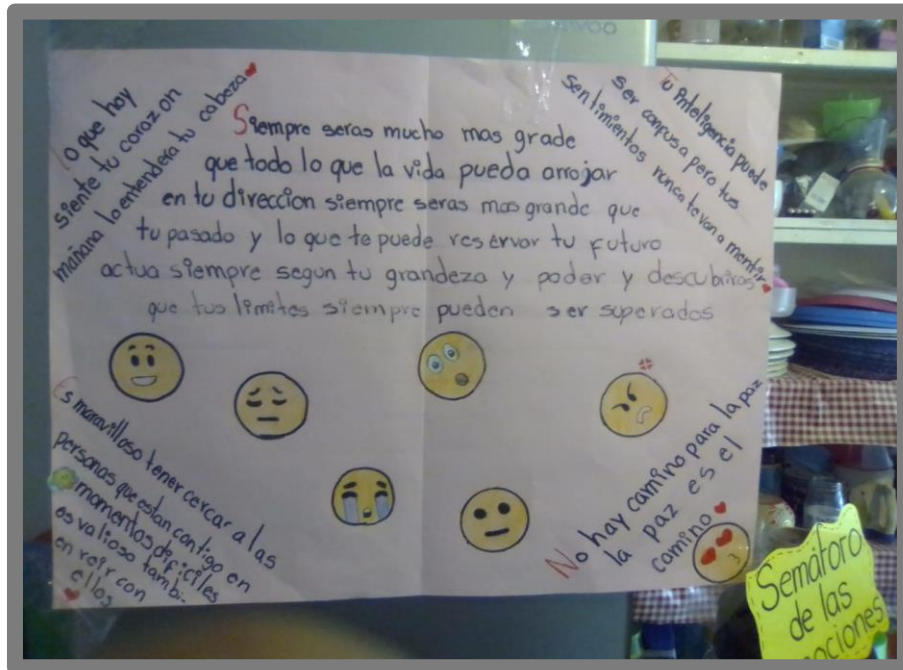 Lo que hoy
siente tu corazon
mañana lo entendera tu cabeza
Siempre seras mucho mas grade
que todo lo que la vida pueda arrojar
en tu direccion siempre seras mas grande que
tu pasado y lo que te puede reservar tu futuro
actua siempre segun tu grandeza y poder y descubriras
que tus limites siempre pueden ser superados
Tu inteligencia puede
ser confusa pero tus
sentimientos nunca te van a mentir
Es maravilloso tener cercar a las
personas que estan contigo en
momentos deficiles
es valioso tambi-
en reir con
ellos
No hay camino para la paz
la paz es el
camino
Semáforo
de las
ociones